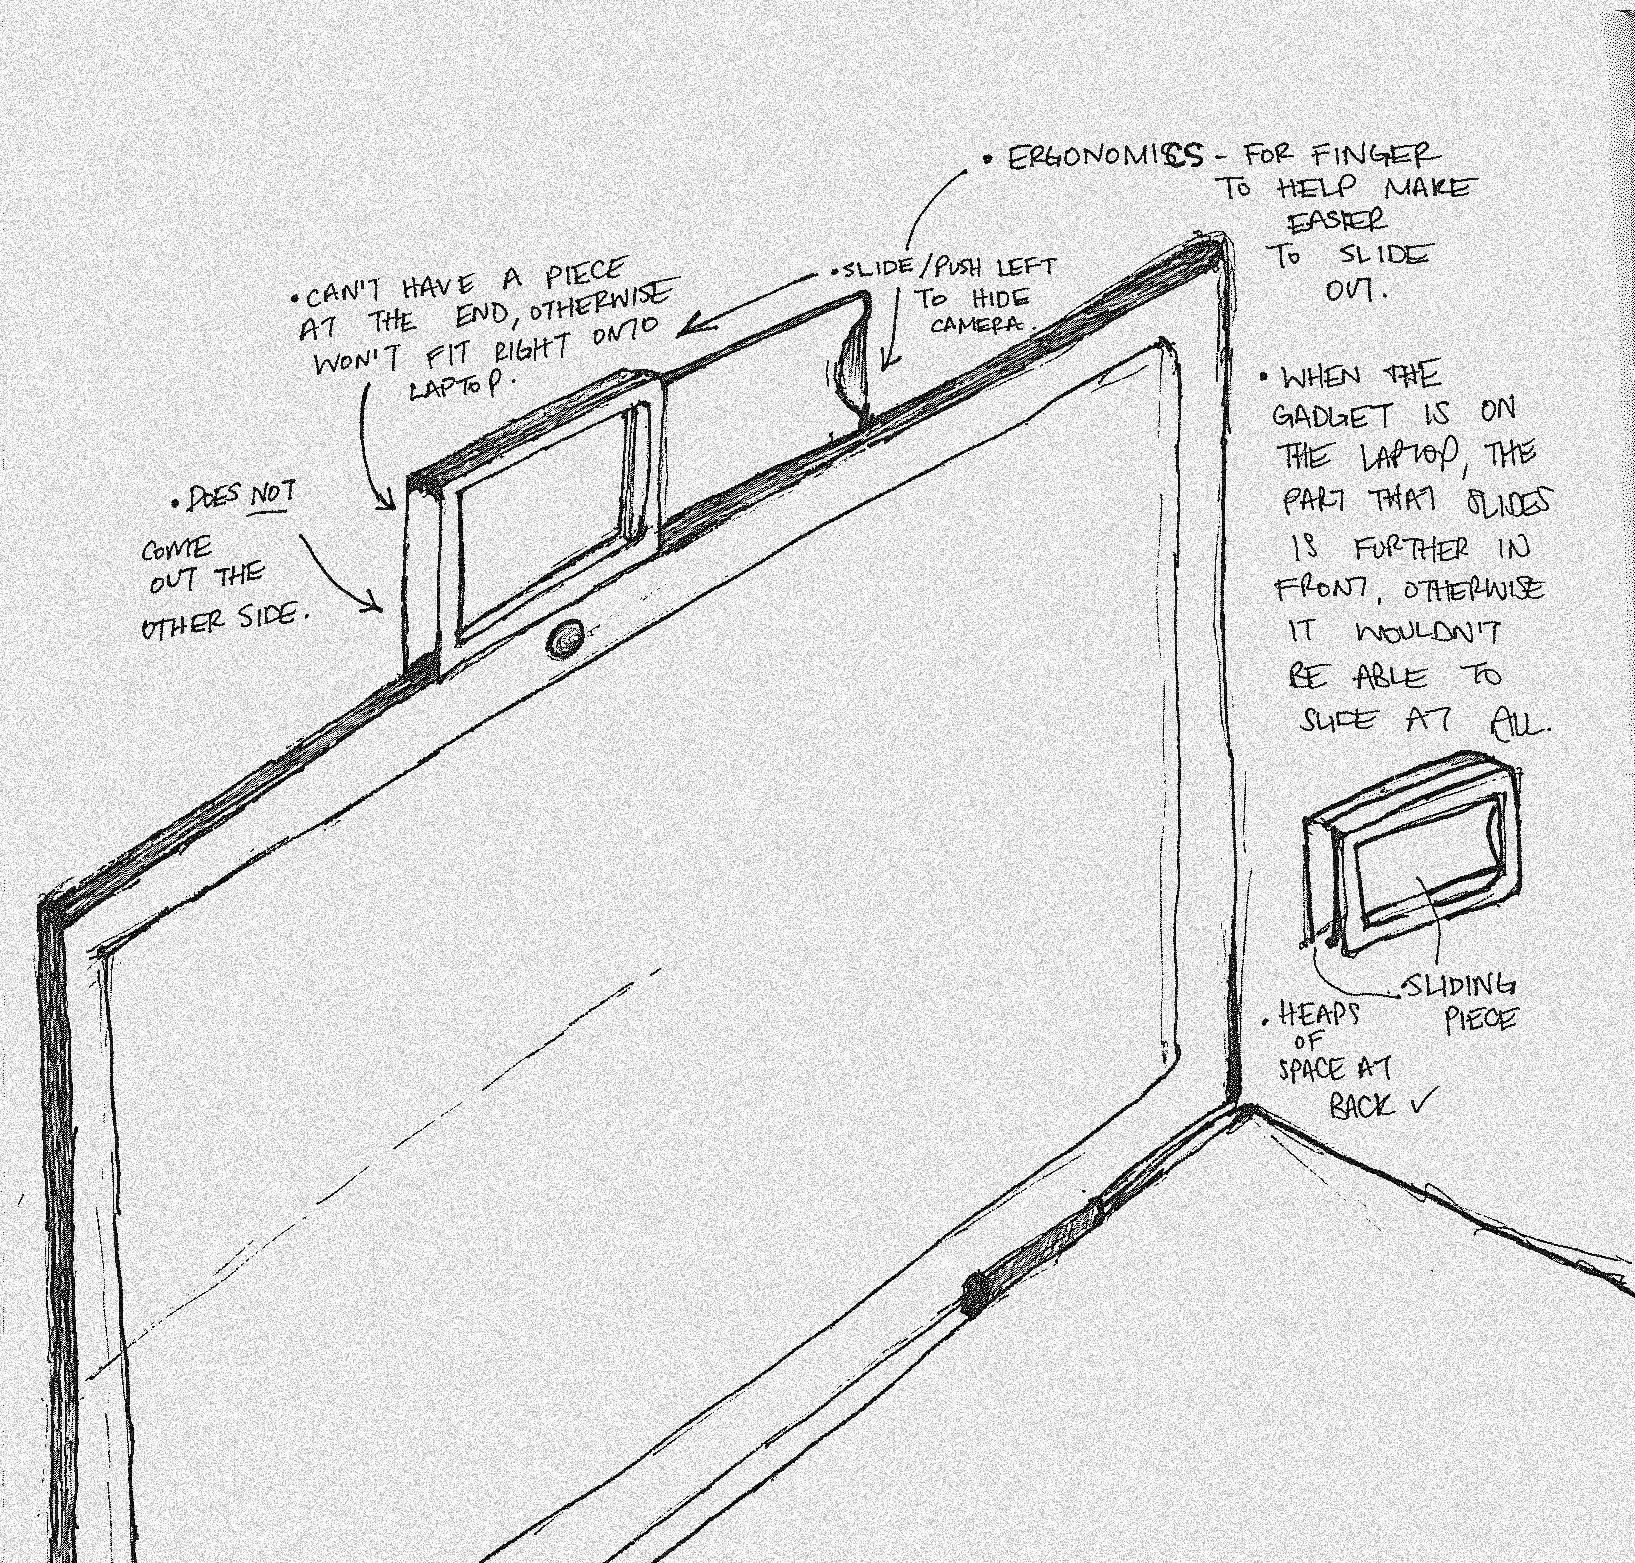 • ERGONOMICS - FOR FINGER
TO HELP MAKE
EASIER
TO SLIDE
OUT.
• SLIDE/PUSH LEFT
TO HIDE
CAMERA.
• CAN'T HAVE A PIECE
AT THE END, OTHERWISE
WON'T FIT RIGHT ONTO
LAPTOP.
• DOES NOT
COME
OUT THE
OTHER SIDE.
• WHEN THE
GADGET IS ON
THE LAPTOP, THE
PART THAT SLIDES
IS FURTHER IN
FRONT, OTHERWISE
IT WOULDN'T
BE ABLE TO
SLIDE AT ALL.
• SLIDING
PIECE
• HEAPS
OF
SPACE AT
BACK ✓